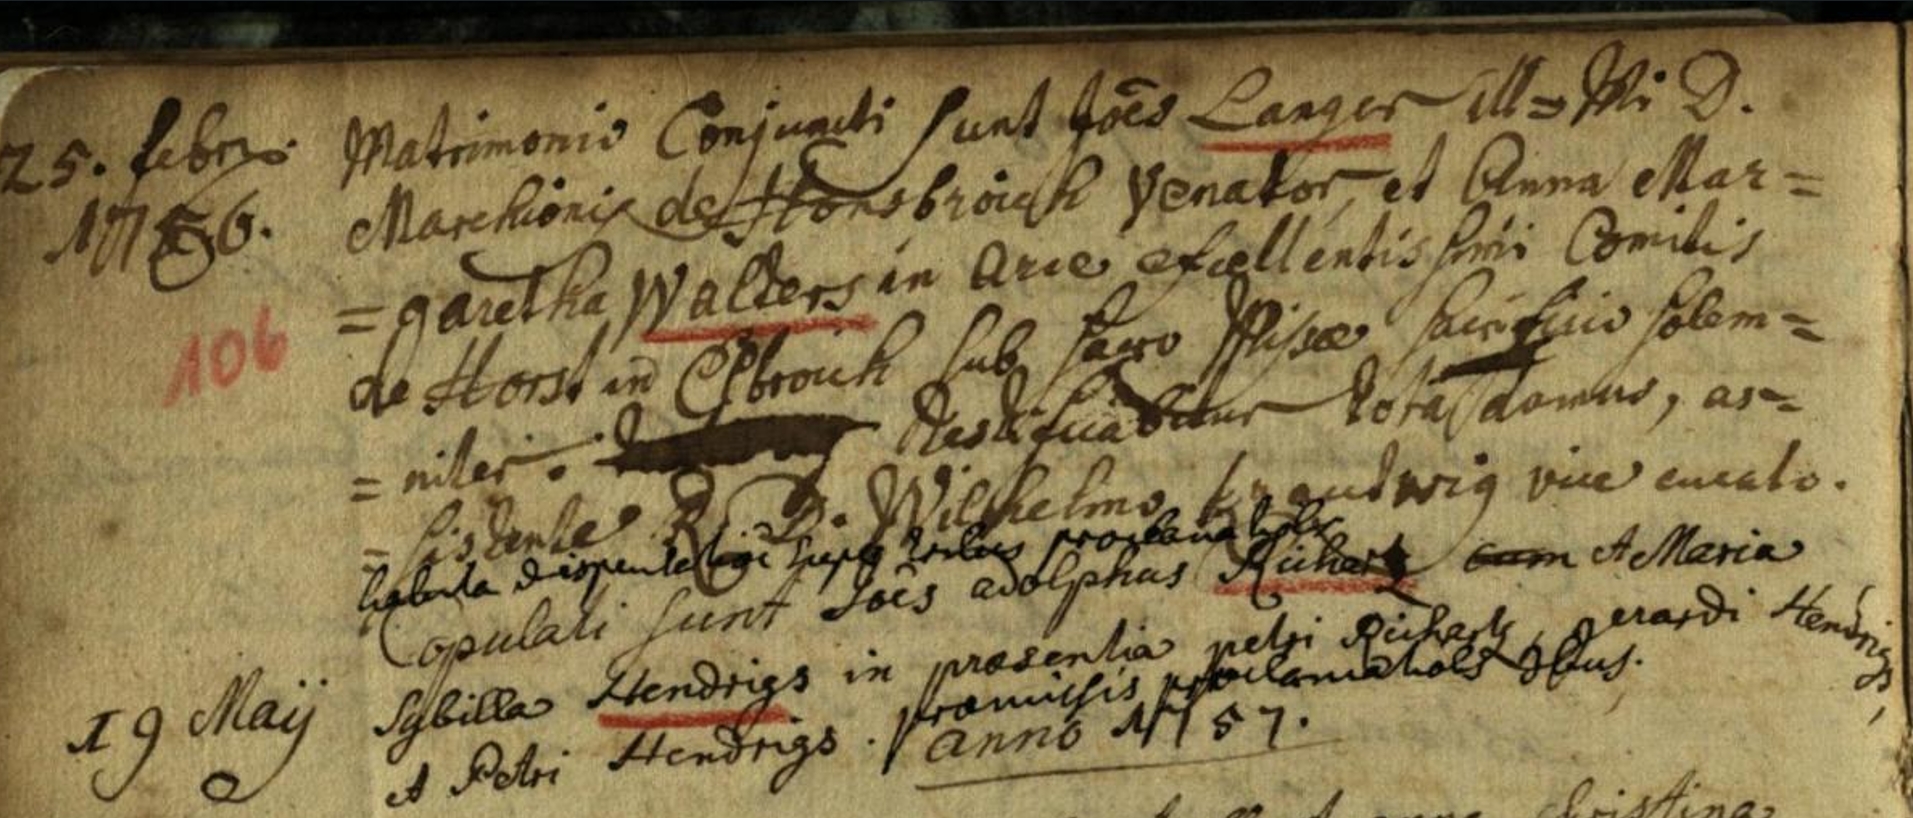 25. febr. Matrimonio Conjuncti sunt Joēs Langer ill=Mi D.
1756. Marchionis de Honsbroich Venator, et Anna Mar=
=garetha Walters in Arce excellentissimi Comitis
106
de Horst in Elbroich sub sacro Missæ sacrificio solem=
=niter. tota domus, as=
=sistente R. D. Wilhelmo vice curato.
habita dispensatione super tribus proclamatiōbs
Copulati sunt Joēs adolphus Richartz cum et Maria
19 Maij Sybilla Hendrigs in præsentia petri Richartz, gerardi Hendrigs,
et Petri Hendrigs. præmissis proclamatiōbs
anno 1757.
Christina